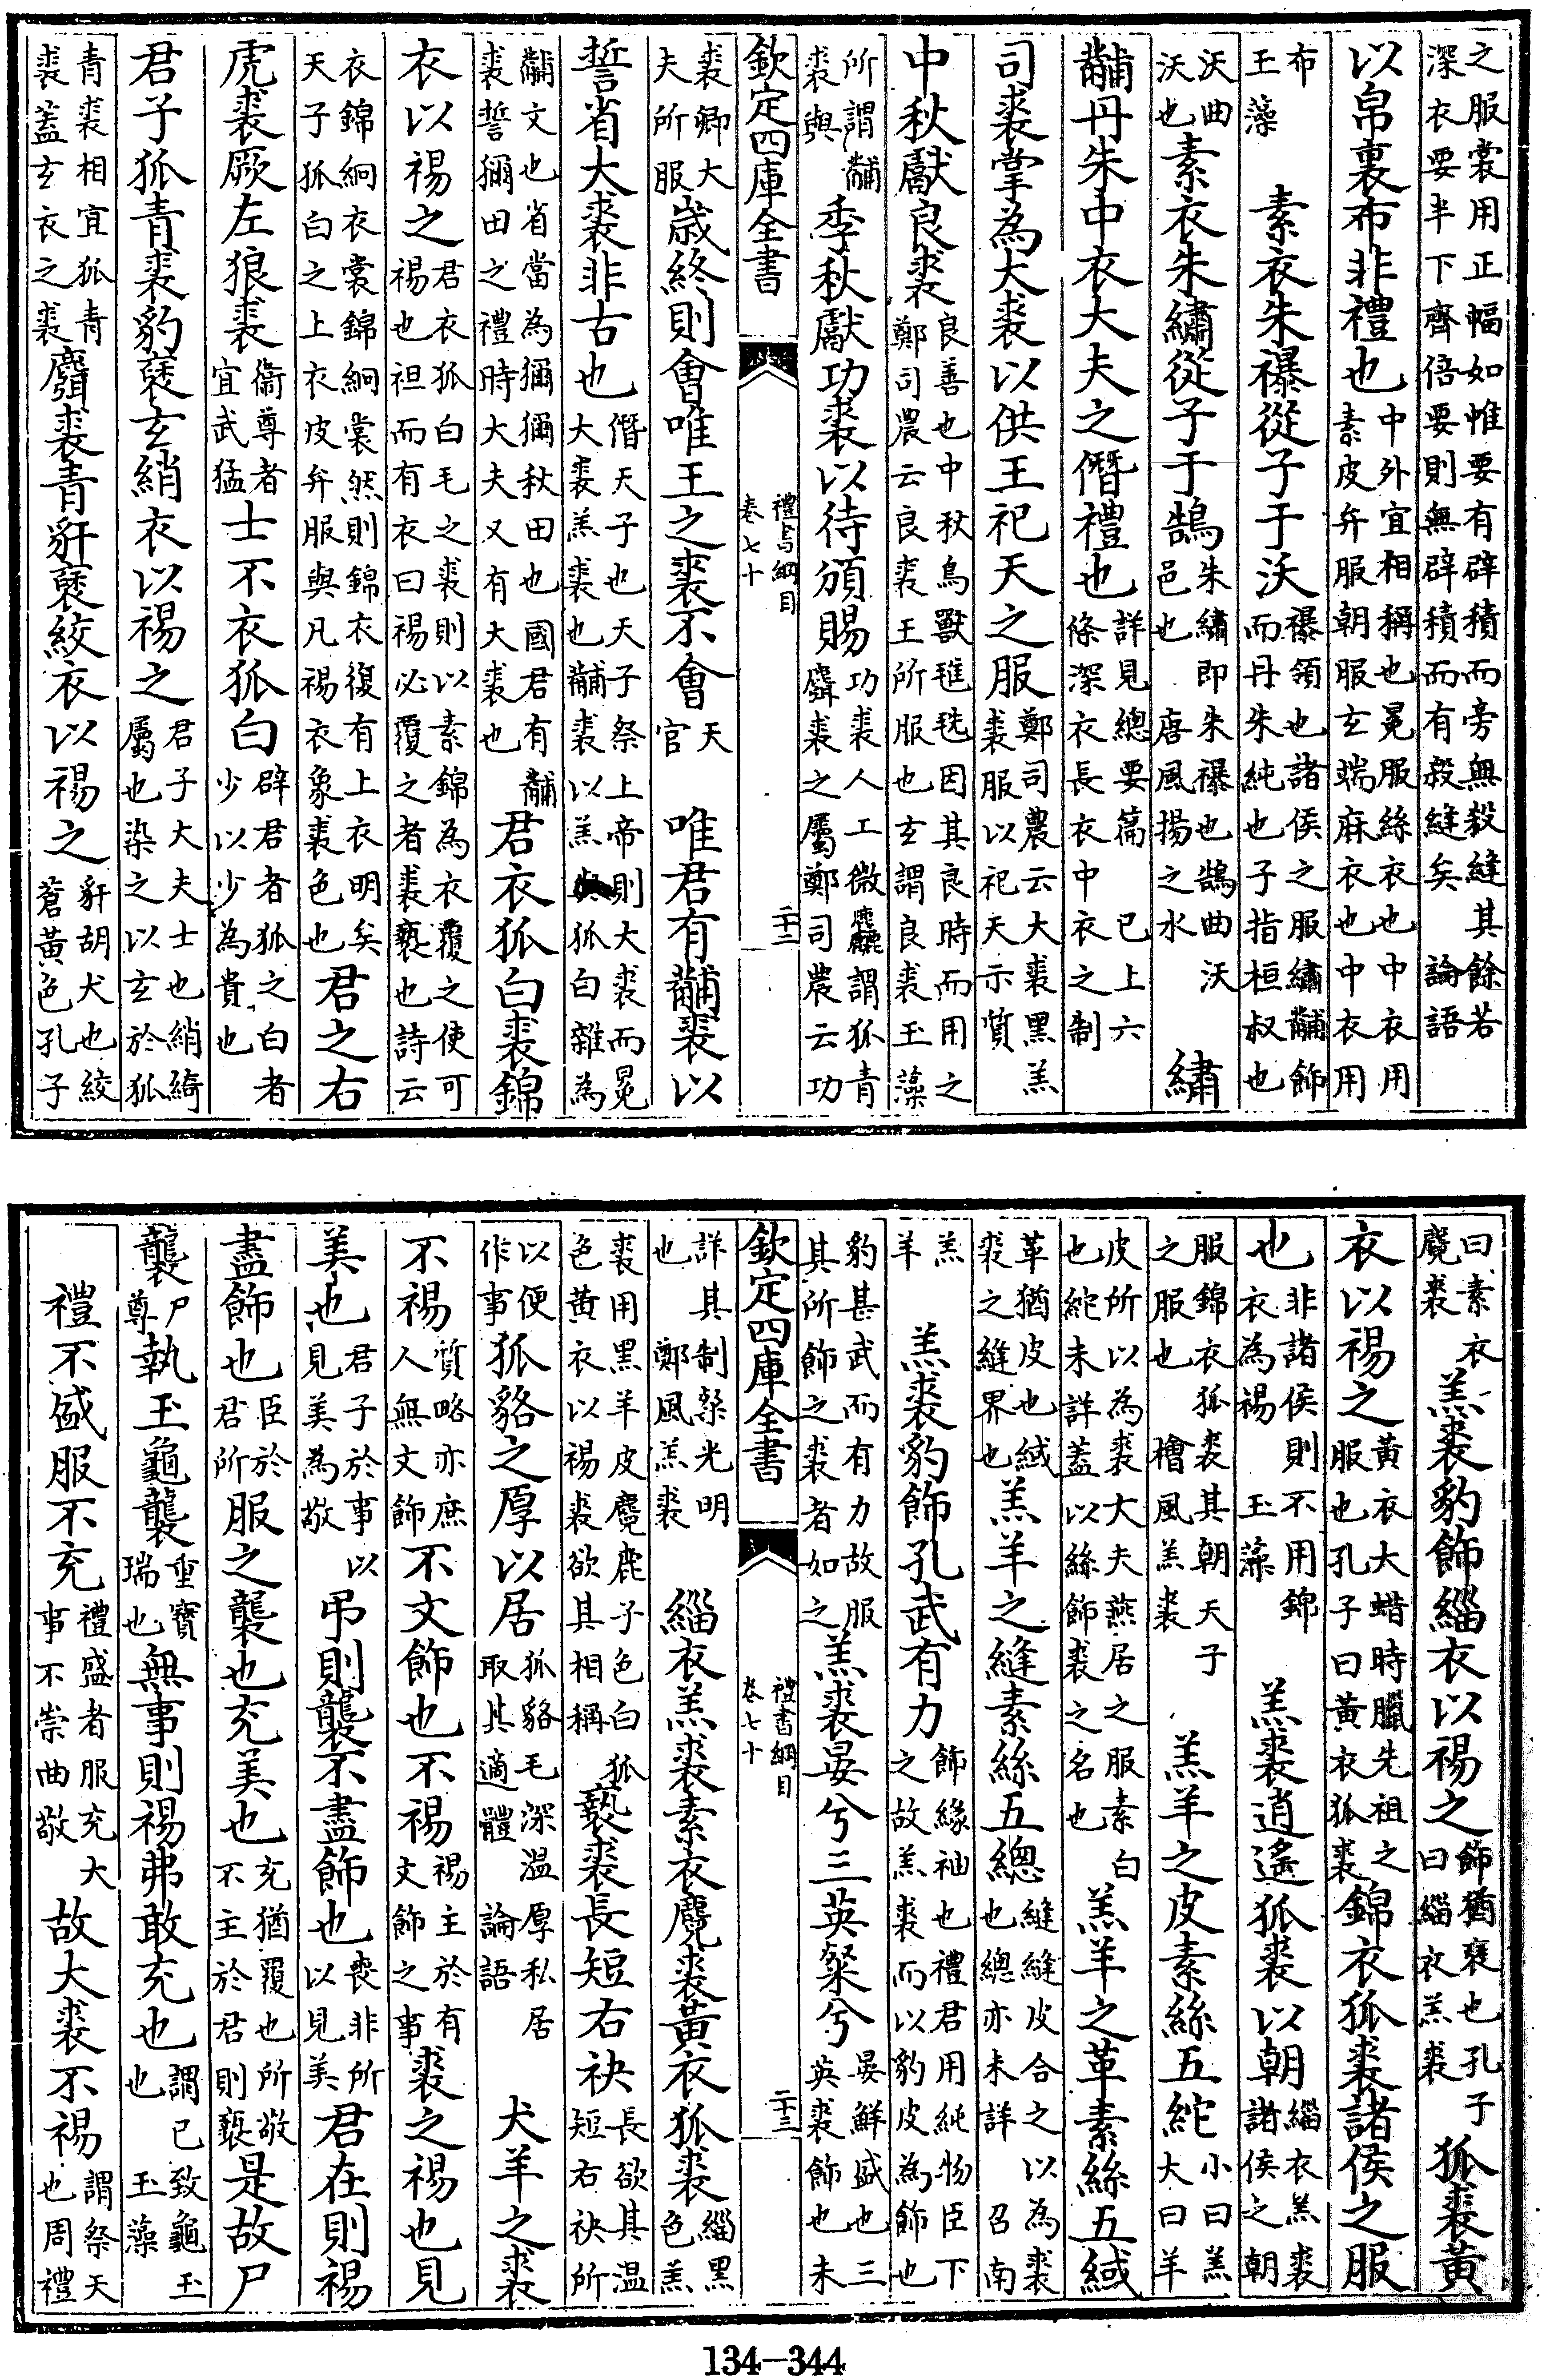 之服裳用正幅如帷要有辟積而旁無殺縫其餘若
深衣要半下齊倍要則無辟積而有殺縫矣 論語
以帛裏布非禮也中外宜相稱也冕服絲衣也中衣用
素皮弁服朝服玄端麻衣也中衣用
布
王藻 素衣朱襮從子于沃襮領也諸侯之服繡黼飾
而丹朱純也子指桓叔也
沃曲
沃也素衣朱繡從子于鵠朱繡即朱襮也鵠曲沃
邑也 唐風揚之水 繡
黼丹朱中衣大夫之僭禮也詳見總要篇 已上六
條深衣長衣中衣之制
司裘掌為大裘以供王祀天之服鄭司農云大裘黑羔
裘服以祀天示質
中秋獻良裘良善也中秋鳥獸毨毨因其良時而用之
鄭司農云良裘王所服也玄謂良裘玉藻
所謂黼
裘與 季秋獻功裘以待頒賜功裘人工微麤謂狐青
麛裘之屬鄭司農云功
欽定四庫全書 禮書綱目
卷七十 二十二
裘卿大
夫所服 歲終則會唯王之裘不會天
官 唯君有黼裘以
誓省大裘非古也僭天子也天子祭上帝則大裘而冕
大裘羔裘也黼裘以羔與狐白雜為
黼文也省當為獮獮秋田也國君有黼
裘誓獮田之禮時大夫又有大裘也 君衣狐白裘錦
衣以裼之君衣狐白毛之裘則以素錦為衣覆之使可
裼也袒而有衣曰裼必覆之者裘褻也詩云
衣錦絅衣裳錦絅裳然則錦衣復有上衣明矣
天子狐白之上衣皮弁服與凡裼衣象裘色也君之右
虎裘厥左狼裘衞尊者
宜武猛士不衣狐白辟君者狐之白者
少以少為貴也
君子狐青裘豹褎玄綃衣以裼之君子大夫士也綃綺
屬也染之以玄於狐
青裘相宜狐青
裘蓋玄衣之裘麛裘青豻褎絞衣以裼之豻胡犬也絞
蒼黃色孔子
曰素衣
麑裘 羔裘豹飾緇衣以裼之飾猶褎也孔子
曰緇衣羔裘 狐裘黃
衣以裼之黃衣大蜡時臘先祖之
服也孔子曰黃衣狐裘錦衣狐裘諸侯之服
也非諸侯則不用錦
衣為裼 玉藻 羔裘逍遙狐裘以朝緇衣羔裘
諸侯之朝
服錦衣狐裘其朝天子
之服也 檜風羔裘 羔羊之皮素絲五紽小曰羔
大曰羊
皮所以為裘大夫燕居之服素白
也紽未詳蓋以絲飾裘之名也 羔羊之革素絲五緎
革猶皮也緎
裘之縫界也羔羊之縫素絲五總縫縫皮合之以為裘
也總亦未詳 召南
羔
羊 羔裘豹飾孔武有力飾緣袖也禮君用純物臣下
之故羔裘而以豹皮為飾也
豹甚武而有力故服
其所飾之裘者如之羔裘晏兮三英粲兮晏鮮盛也三
英裘飾也未
欽定四庫全書 禮書綱目
卷七十 二十三
詳其制粲光明
也 鄭風羔裘 緇衣羔裘素衣麑裘黃衣狐裘緇黑
色羔
裘用黑羊皮麑鹿子色白狐
色黃衣以裼裘欲其相稱 褻裘長短右袂長欲其溫
短右袂所
以便
作事狐貉之厚以居狐貉毛深溫厚私居
取其適體 論語 犬羊之裘
不裼質略亦庶
人無文飾不文飾也不裼裼主於有
文飾之事裘之裼也見
美也君子於事以
見美為敬 弔則襲不盡飾也喪非所
以見美君在則裼
盡飾也臣於
君所服之襲也充美也充猶覆也所敬
不主於君則褻是故尸
襲尸
尊執玉龜襲重寶
瑞也無事則裼弗敢充也謂已致龜玉
也 玉藻
禮不盛服不充禮盛者服充大
事不崇曲敬 故大裘不裼謂祭天
也周禮
134-344